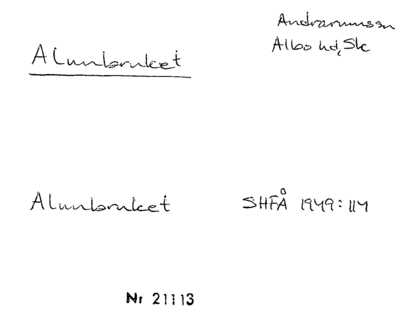 Alunbruket
Andrarumssn
Albo hd, Sk
Alunbruket SHFÅ 1949:114
Nr 21113